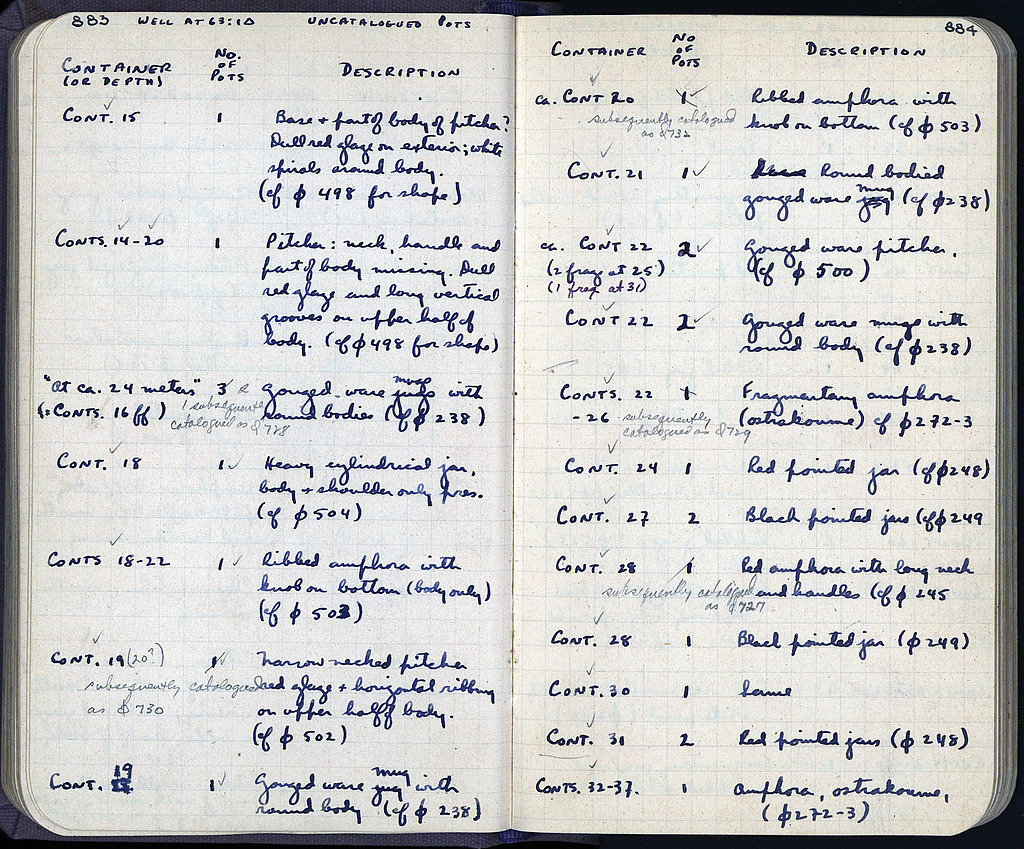 883 WELL AT 63:10 UNCATALOGUED POTS
CONTAINER (OR DEPTH) NO. OF POTS DESCRIPTION
CONT. 15 1 Base + part of body of pitcher?
Dull red glaze on exterior; white
spirals around body.
(cf ϕ 498 for shape)
CONTS. 14-20 1 Pitcher: neck, handle and
part of body missing. Dull
red glaze and long vertical
grooves on upper half of
body. (cf ϕ 498 for shape)
"At ca. 24 meters" 3 2 Gouged-ware jugs mugs with
(= CONTS. 16 ff) 1 subsequently catalogued as ϕ 728 round bodies (cf ϕ 238)
CONT. 18 1 Heavy cylindrical jar,
body + shoulder only pres.
(cf ϕ 504)
CONTS 18-22 1 Ribbed amphora with
knob on bottom (body only)
(cf ϕ 503)
CONT. 19 (20?) 1 Narrow necked pitcher
subsequently catalogued red glaze + horizontal ribbing
as ϕ 730 on upper half of body.
(cf ϕ 502)
CONT. 19 1 Gouged ware jug mug with
round body (cf ϕ 238)
884
CONTAINER NO OF POTS DESCRIPTION
ca. CONT 20 1 Ribbed amphora with
subsequently catalogued as ϕ 732 knob on bottom (cf ϕ 503)
CONT. 21 1 Round bodied
gouged ware jug mug (cf ϕ 238)
ca. CONT 22 2 Gouged ware pitcher.
(2 frags at 25) (cf ϕ 500)
(1 frag. at 31)
CONT 22 2 Gouged ware mugs with
round body (cf ϕ 238)
CONTS. 22 1 Fragmentary amphora
-26 subsequently catalogued as ϕ 729 (ostrakoume) cf ϕ 272-3
CONT. 24 1 Red pointed jar (cf ϕ 248)
CONT. 27 2 Black pointed jars (cf ϕ 249
CONT. 28 1 Red amphora with long neck
subsequently catalogued as ϕ 727 and handles (cf ϕ 245
CONT. 28 1 Black pointed jar (ϕ 249)
CONT. 30 1 Same
CONT. 31 2 Red pointed jars (ϕ 248)
CONTS. 32-37. 1 Amphora, ostrakoume,
(ϕ 272-3)